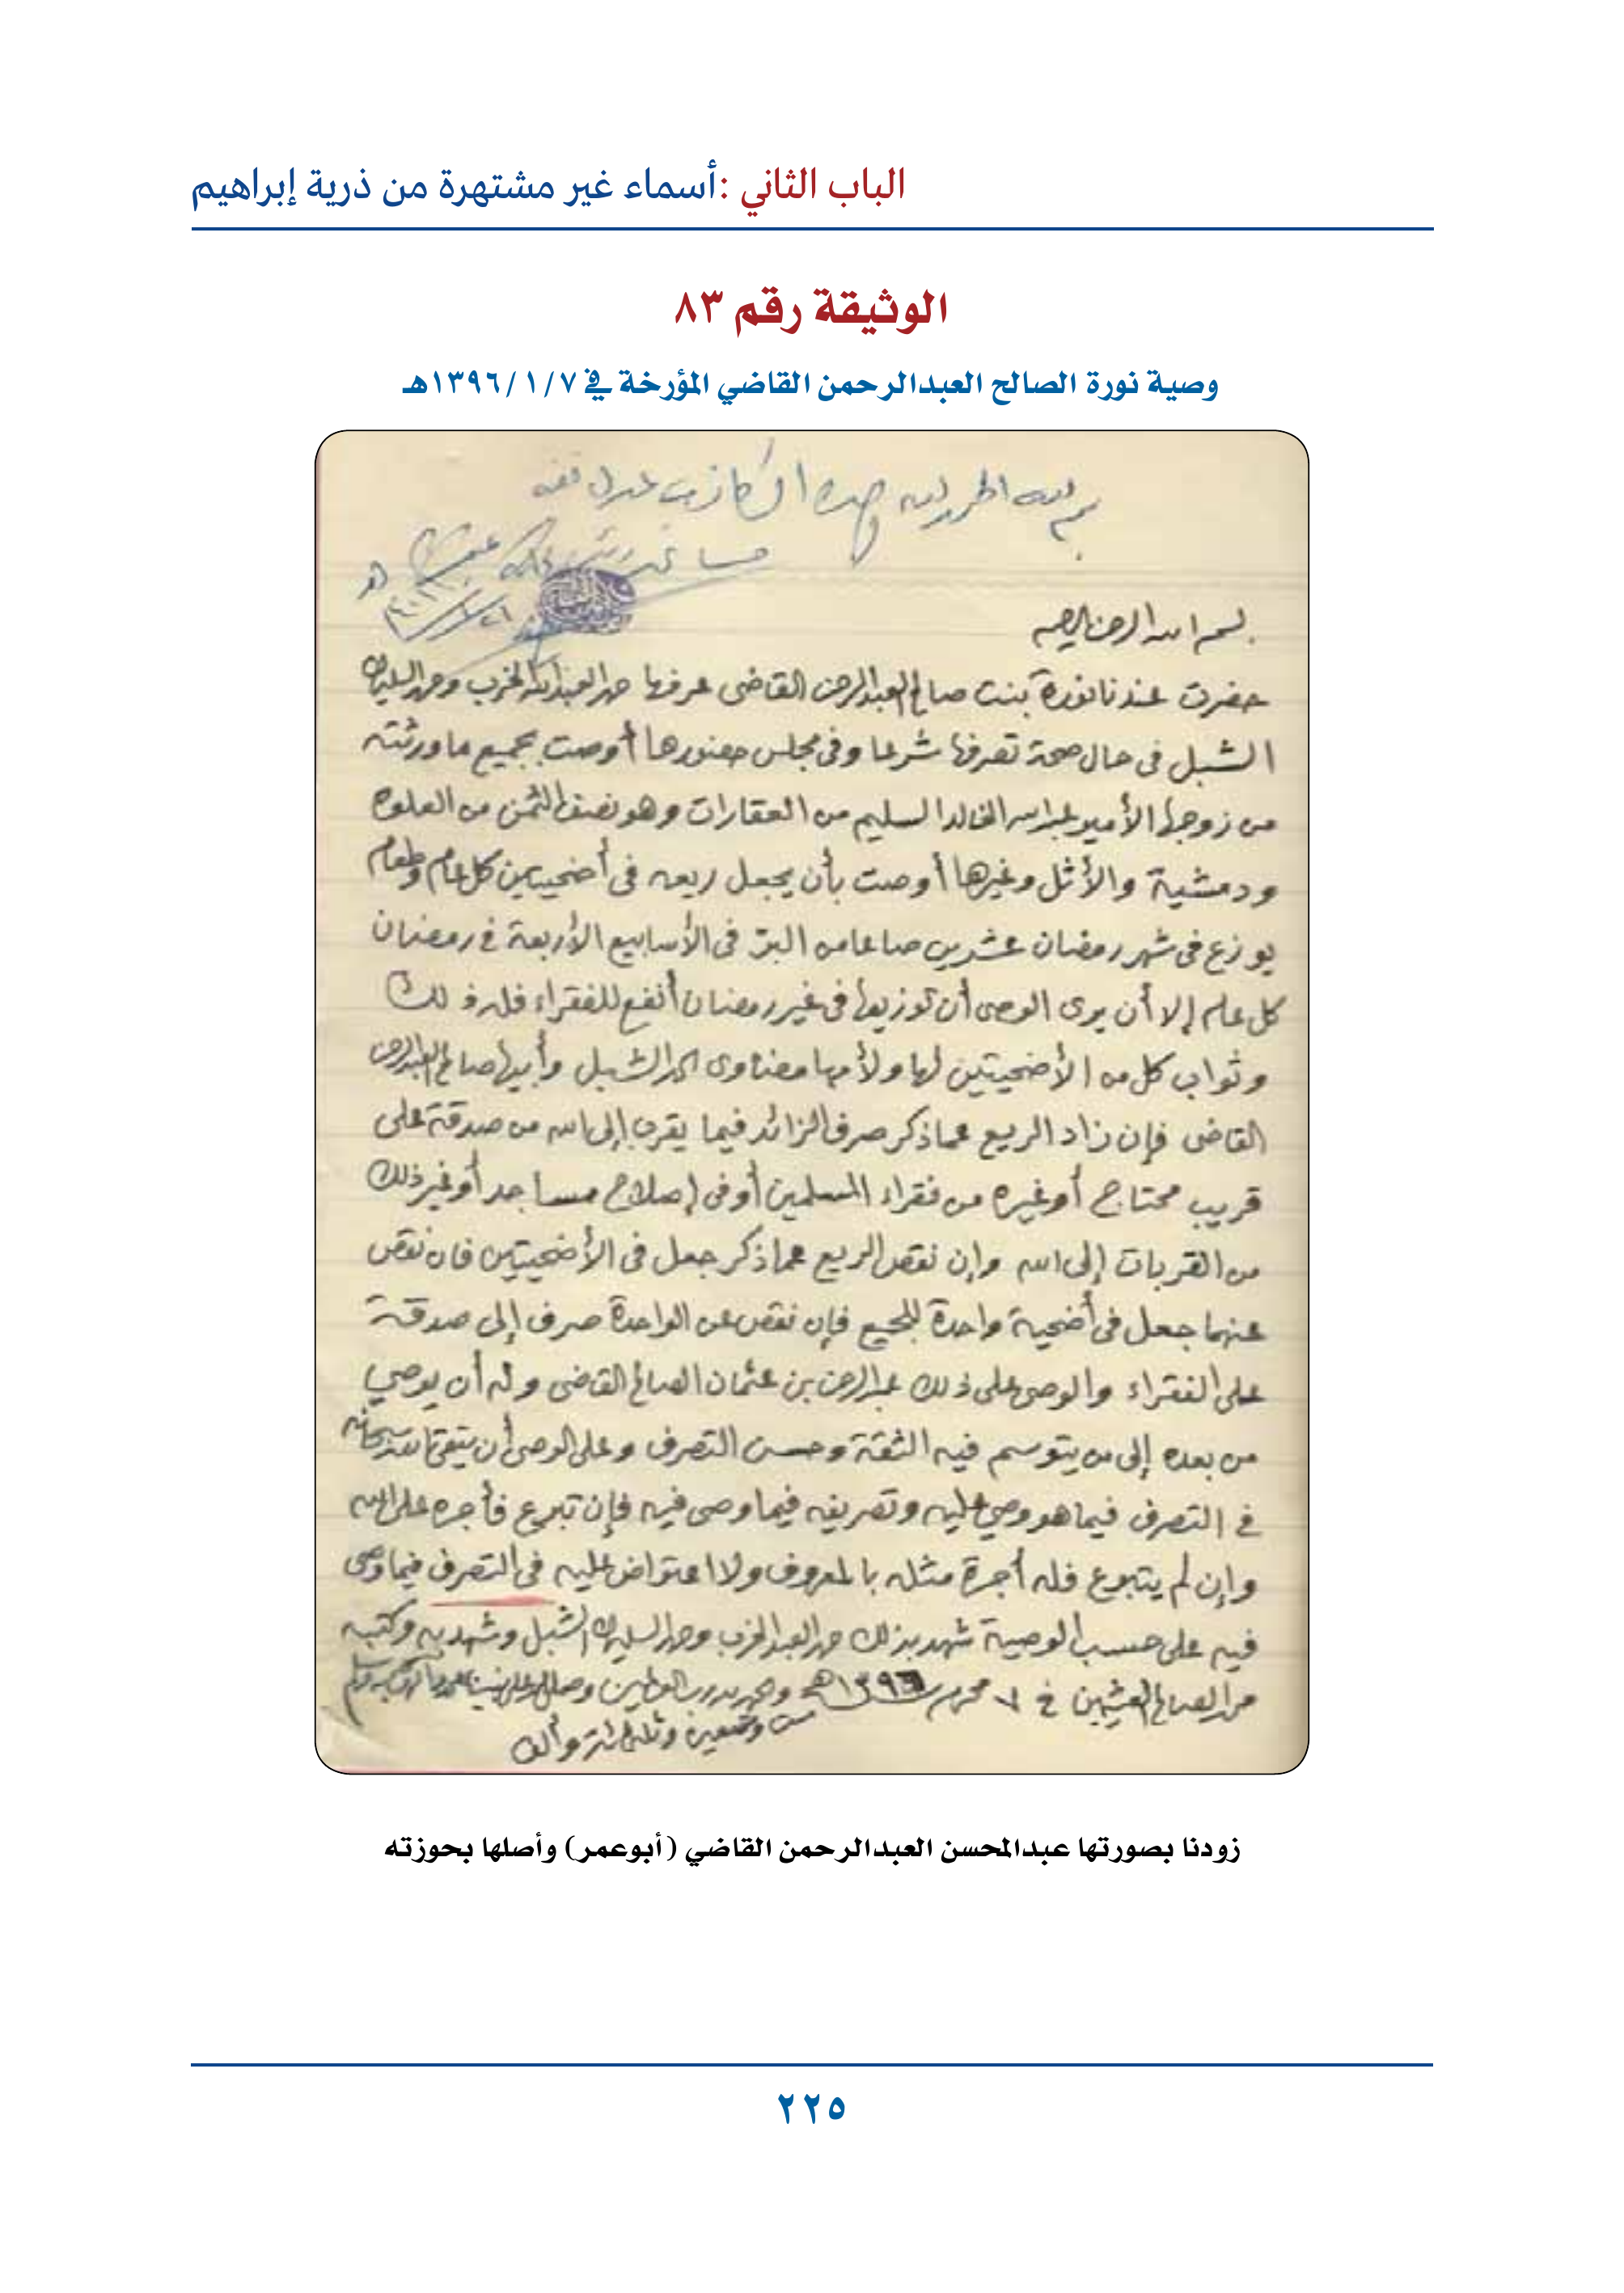 الباب الثاني :أسماء غير مشتهرة من ذرية إبراهيم
الوثيقة رقم ٨٣
وصية نورة الصالح العبدالرحمن القاضي المؤرخة في ١٣٩٦/١/٧هـ
بسم الله الحمد لله
بسم الله الرحمن الرحيم
حضرت عندنا نورة بنت صالح العبدالرحمن القاضى عرفها حمد العبدالله الخرب وحمد السليمان
الشبل فى حال صحة تصرفها شرعا وفى مجلس حضورها أوصت بجميع ما ورثته
من زوجها الأمير عبدالله الخالد السليم من العقارات وهو نصف الثمن من العلوه
ودمشية والأثل وغيرها أوصت بأن يجعل ريعه فى أضحيتين كل عام وطعام
يوزع فى شهر رمضان عشرين صاعا من البر فى الأسابيع الأربعة في رمضان
كل عام إلا أن يرى الوصى أن توزيعها فى غير رمضان أنفع للفقراء فله ذلك
وثواب كل من الأضحيتين لها ولأمها مضاوى الشبل وأبيها صالح العبدالرحمن
القاضى فإن زاد الريع عما ذكر صرف الزائد فيما يقرب إلى الله من صدقة على
قريب محتاج أو غيره من فقراء المسلمين أو فى إصلاح مساجد أو غير ذلك
من القربات إلى الله وإن نقص الريع عما ذكر جعل فى الأضحيتين فان نقص
عنهما جعل فى أضحية واحدة للجميع فإن نقص عن الواحدة صرف إلى صدقة
على الفقراء والوصى على ذلك عبدالرحمن بن عثمان الصالح القاضى وله أن يوصي
من بعده إلى من يتوسم فيه الثقة وحسن التصرف وعلى الوصى أن يتقى الله سبحانه
في التصرف فيما هو وصي عليه وتصريفه فيما وصى فيه فإن تبرع فأجره على الله
وإن لم يتبرع فله أجرة مثله بالمعروف ولا اعتراض عليه فى التصرف فيما وصى
فيه على حسب الوصية شهد بذلك حمد العبدالله الخرب وحمد السليمان الشبل وشهد به وكتبه
الصالح العثيمين في ٧ محرم سنة ١٣٩٦هـ والحمد لله رب العالمين وصلى الله على نبينا محمد وآله وصحبه وسلم
ست وتسعين وثلاثمائة وألف
زودنا بصورتها عبدالمحسن العبدالرحمن القاضي (أبوعمر) وأصلها بحوزته
٢٢٥